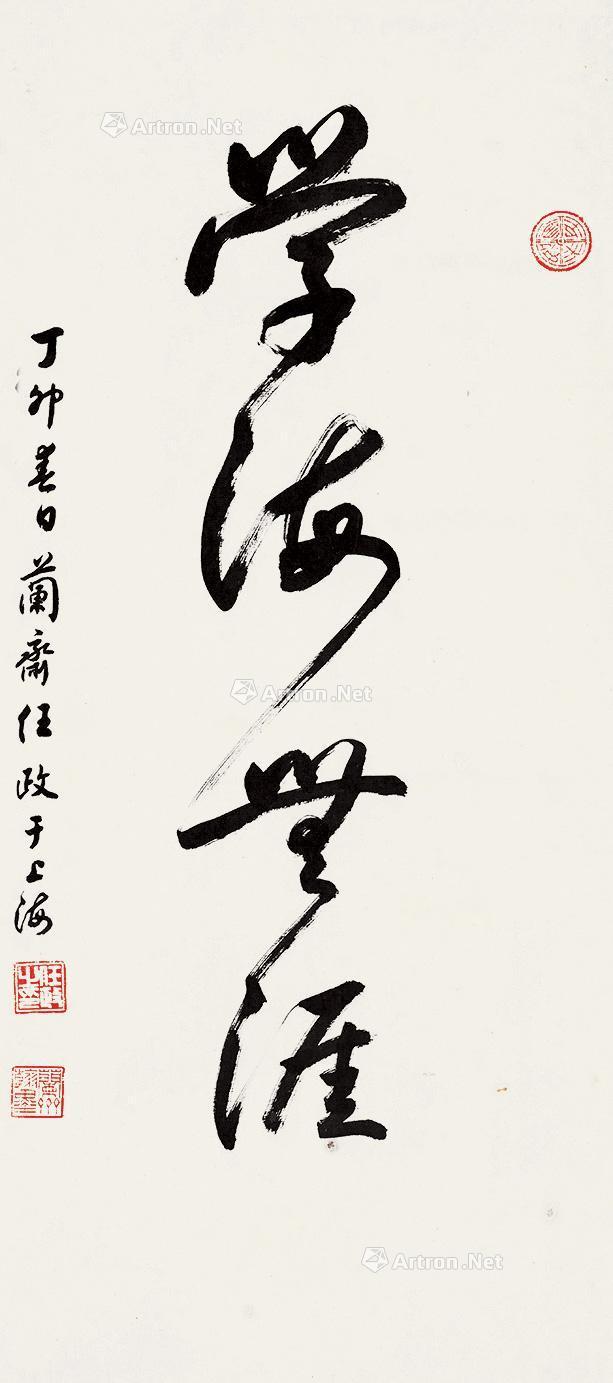 学海無涯
丁卯春日蘭齋任政于上海
任政之璽
Artron.Net
Artron.Net
Artron.Net